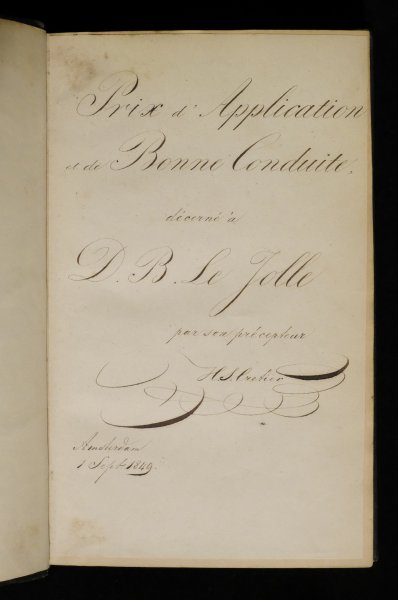 Prix d'Application
et de Bonne Conduite,
décerné à
D. B. Le Jolle
par son précepteur
Amsterdam
1 Sept. 1849.